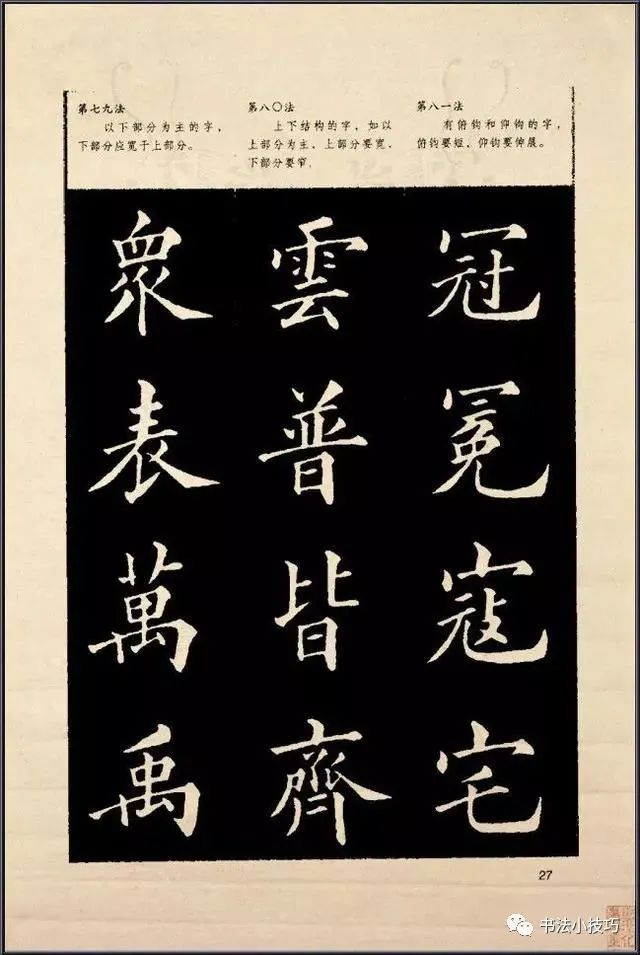 第七九法
以下部分为主的字,
下部分应宽于上部分。
第八〇法
上下结构的字,如以
上部分为主,上部分要宽,
下部分要窄。
第八一法
有俯钩和仰钩的字,
俯钩要短,仰钩要伸展。
眾 雲 冠
表 普 冕
萬 皆 寇
禹 齊 宅
27
书法小技巧